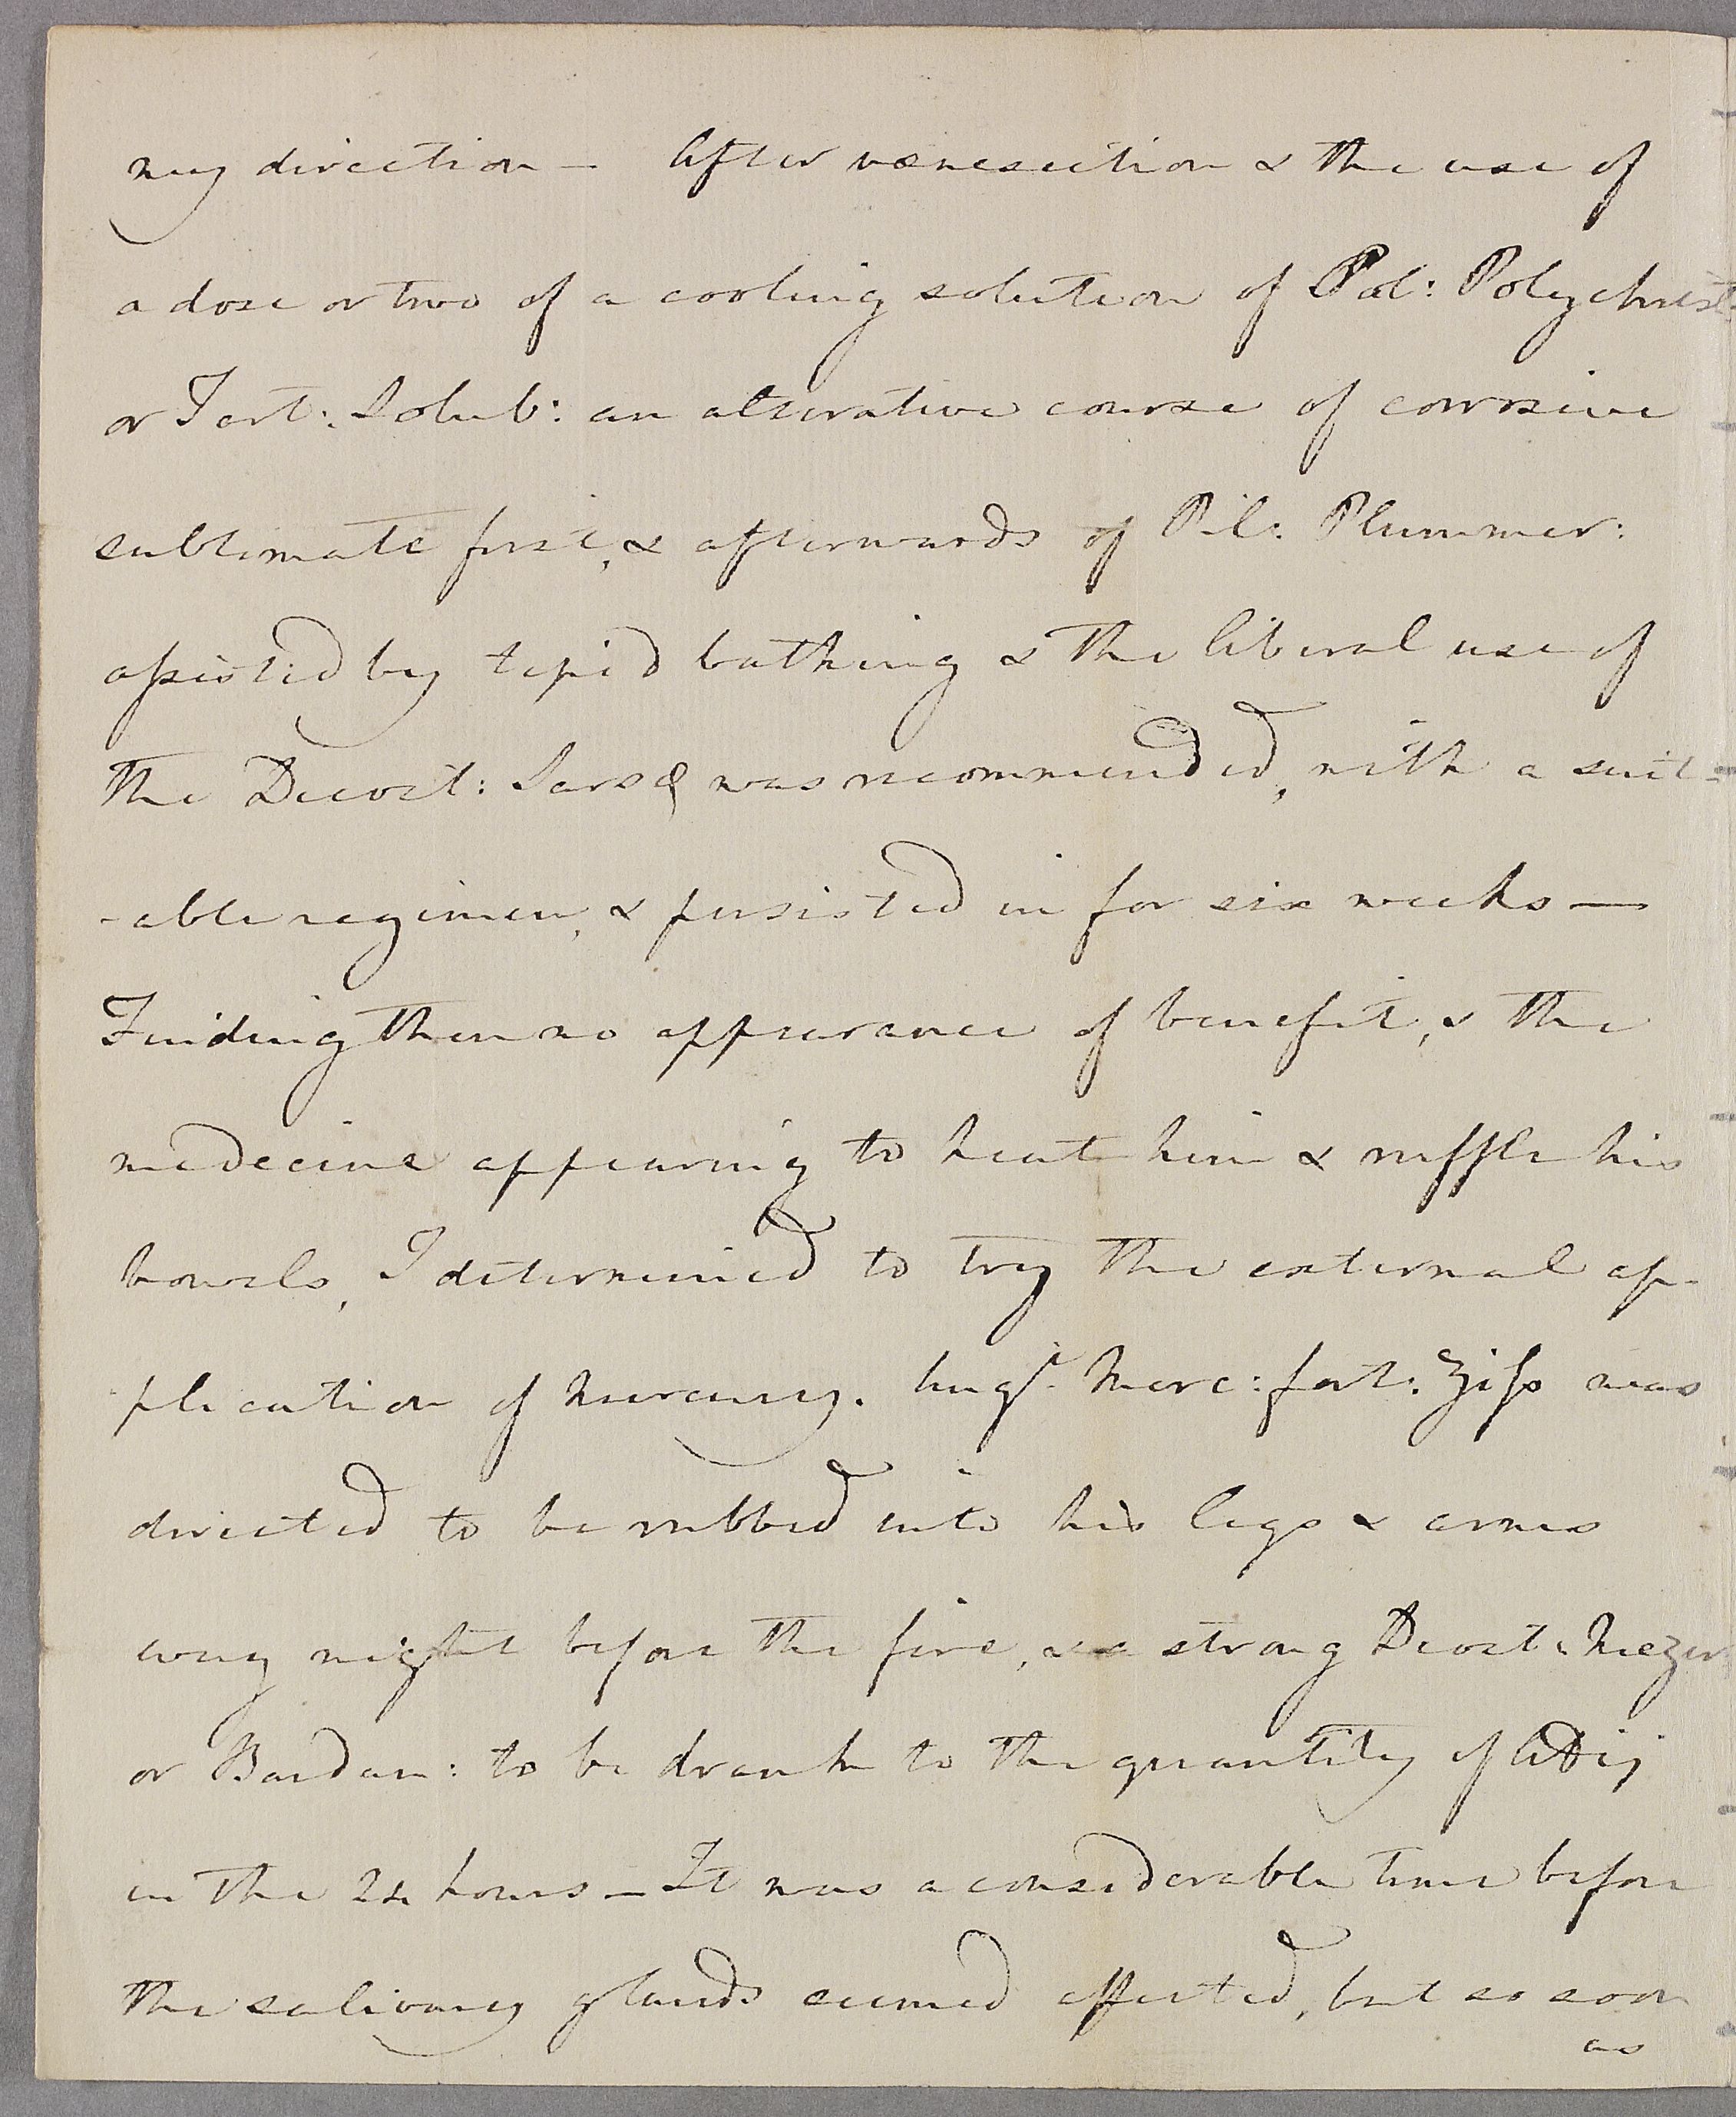 my direction — After vænesection & the use of
a dose or two of a cooling solution of Pol: Polychrest:
or Tart: Solub: an alterative course of corrosive
sublimate first, & afterwards of Pil: Plummer:
assisted by tepid bathing & the liberal use of
the Decoct: Sarsæ was recommended, with a suit-
-able regimen, & persisted in for six weeks —
Finding then no appearance of benefit, & the
medecine appearing to heat him & ruffle his
bowels, I determined to try the external ap-
plication of Mercury. Ungt. Merc: fort: ʒiss was
directed to be rubbed into his legs & arms
every night before the fire, & a strong Decoct: Mezer
or Bardan: to be drank to the quantity of lbij
in the 24 hours — It was a considerable time before
the salivary glands seemed affected, but so soon
as